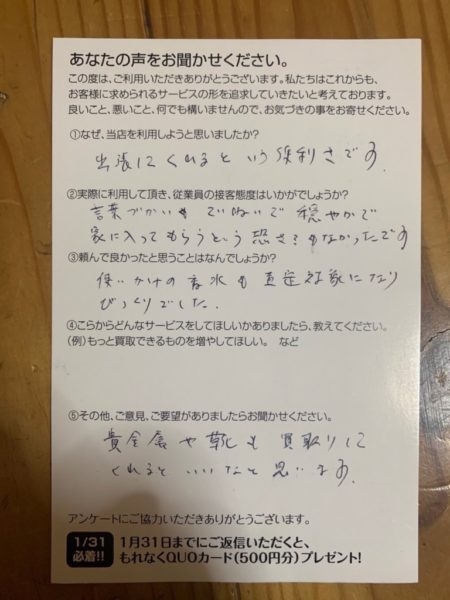 あなたの声をお聞かせください。
この度は、ご利用いただきありがとうございます。私たちはこれからも、
お客様に求められるサービスの形を追求していきたいと考えております。
良いこと、悪いこと、何でも構いませんので、お気づきの事をお寄せください。
①なぜ、当店を利用しようと思いましたか?
出張にくれるという便利さです。
②実際に利用して頂き、従業員の接客態度はいかがでしょうか?
言葉づかいもていねいで穏やかで
家に入ってもらうという恐さもなかったです
③頼んで良かったと思うことはなんでしょうか?
使いかけの香水も査定対象になり
びっくりでした.
④こらからどんなサービスをしてほしいかありましたら、教えてください。
(例)もっと買取できるものを増やしてほしい。 など
⑤その他、ご意見、ご要望がありましたらお聞かせください。
貴金属や靴も買取りに
くれるといいなと思います.
アンケートにご協力いただきありがとうございます。
1/31
必着!!
1月31日までにご返信いただくと、
もれなくQUOカード(500円分)プレゼント!